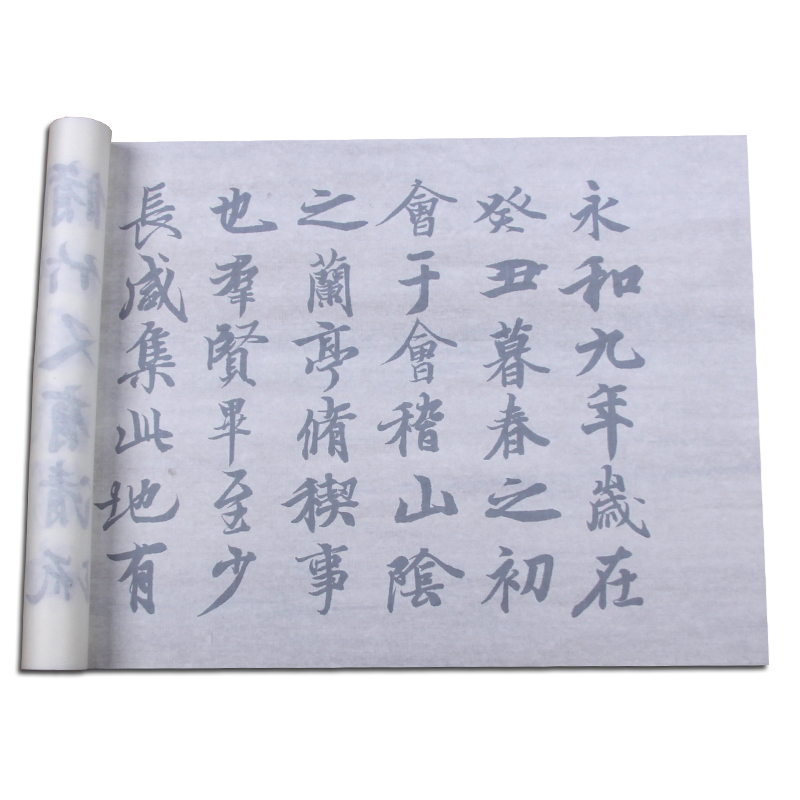 永和九年歲在
癸丑暮春之初
會于會稽山陰
之蘭亭脩稧事
也羣賢畢至少
長咸集此地有
脩竹又有清流